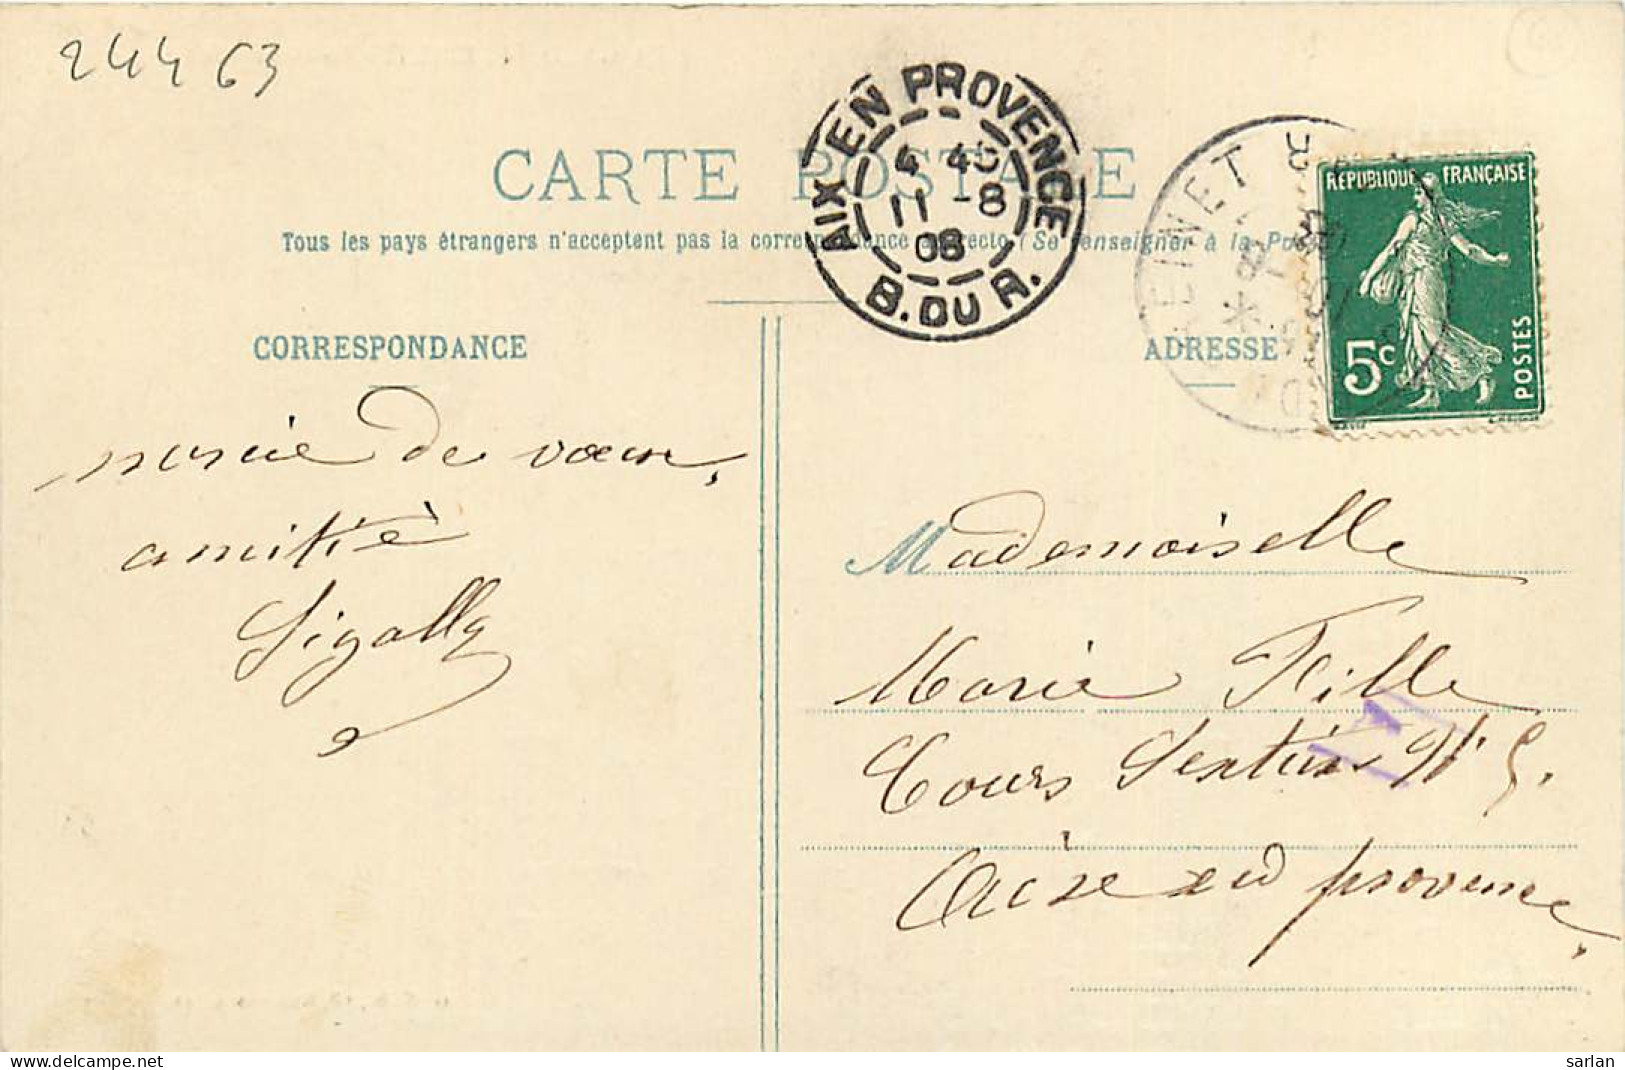 244 63
AIX EN PROVENCE
4 45
11 -8
08
B. DU R.
CARTE POSTALE
Tous les pays étrangers n'acceptent pas la correspondance au recto (Se renseigner à la Poste)
RÉPUBLIQUE FRANÇAISE
5c
POSTES
CORRESPONDANCE
ADRESSE
de vœux,
amitiè
Sigally
Mademoiselle
Marie Fille
Cours Sextius N° 5.
Aix en provence,
sarlan